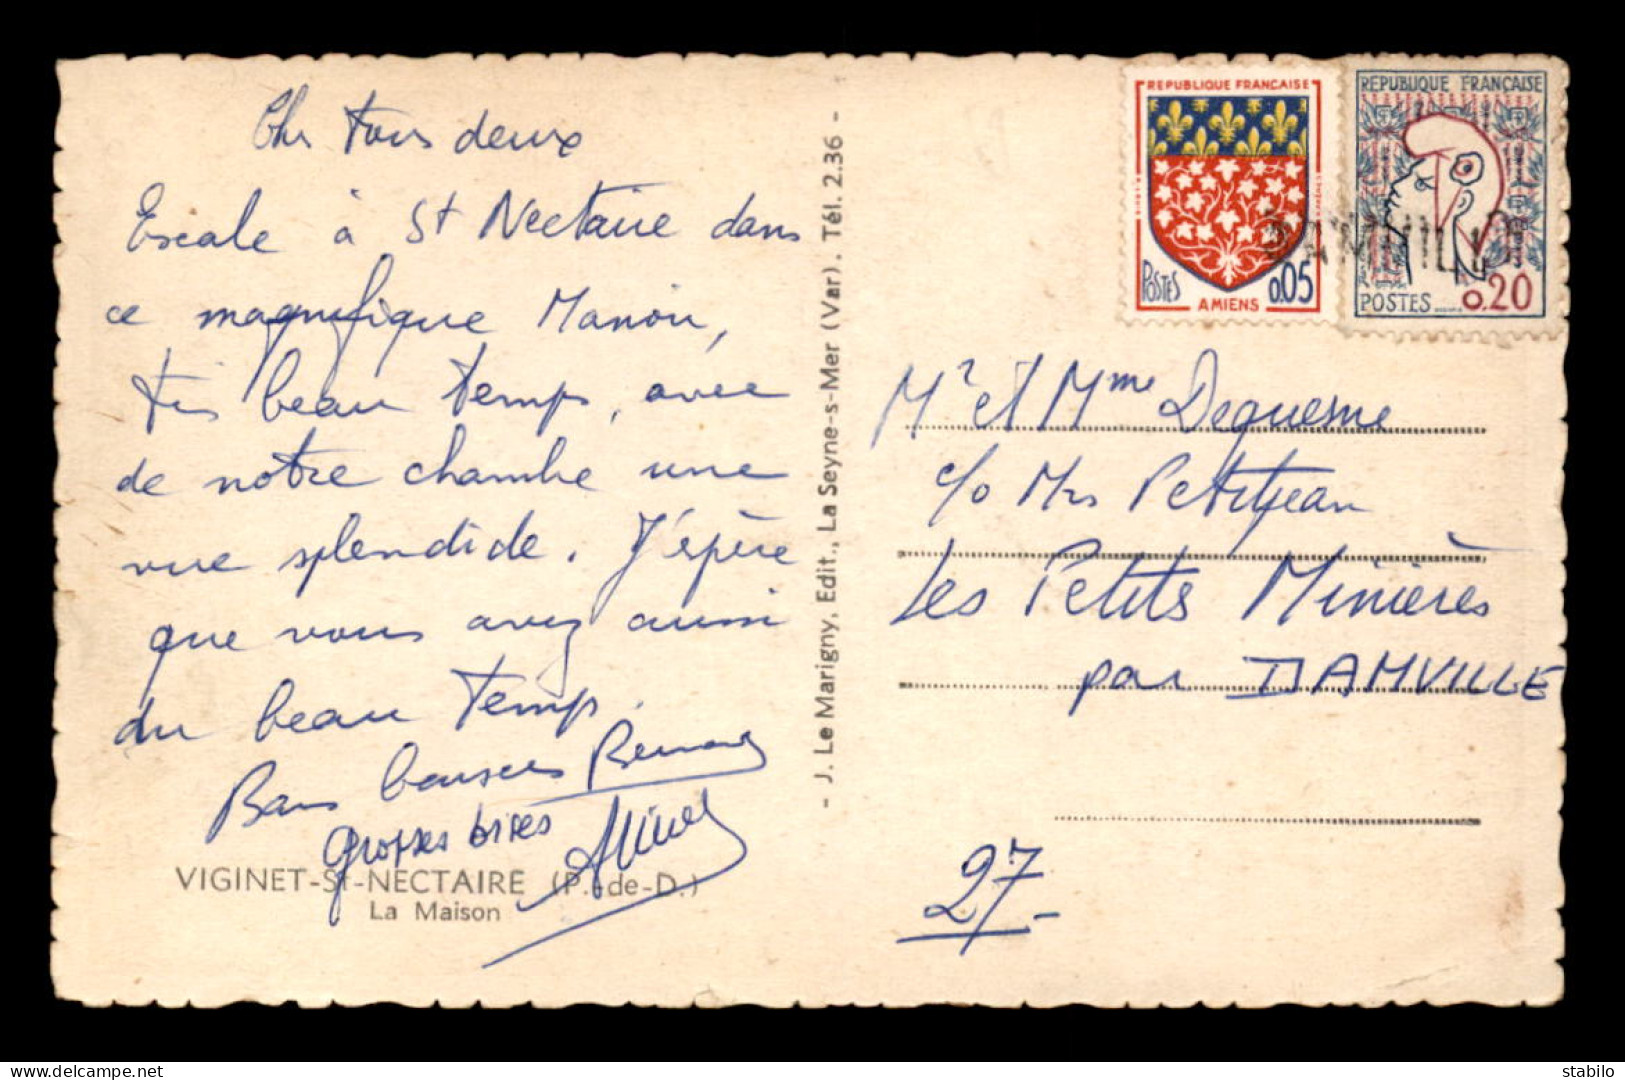 Chs tous deux
Escale à St Nectaire dans
ce magnifique Manoir,
très beau temps, avec
de notre chambre une
vue splendide. J'éspère
que vous avez aussi
du beau temps.
Bons baisers Bernard
Grosses bises
VIGINET-St-NECTAIRE (P.-de-D.)
La Maison
- J. Le Marigny, Edit., La Seyne-s-Mer (Var). Tél. 2.36 -
REPUBLIQUE FRANÇAISE
POSTES 0.05
AMIENS
REPUBLIQUE FRANÇAISE
POSTES 0.20
DAMVILLE
Mr et Mme Dequesne
c/o Mrs Petitjean
Les Petits Minières
par DAMVILLE
27
delcampe.net
stabilo